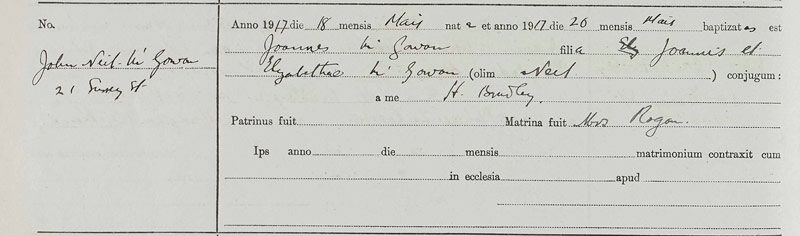 No.
John Neil McGowan
21 Surrey St.
Anno 1917 die 18 mensis Maii nat a et anno 1917 die 20 mensis Maii baptizat as est
Joannes McGowan filia Joannis et
Elizabethae McGowan (olim Neil) conjugum:
a me H. Bradley.
Patrinus fuit Matrina fuit Mrs Rogan.
Ips anno die mensis matrimonium contraxit cum
in ecclesia apud